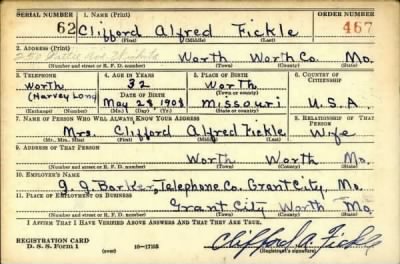 SERIAL NUMBER 1. NAME (Print) ORDER NUMBER
62 Clifford Alfred Fickle 467
(First) (Middle) (Last)
2. ADDRESS (Print)
Worth Worth Co. Mo.
(Number and street or R. F. D. number) (Town) (County) (State)
3. TELEPHONE 4. AGE IN YEARS 5. PLACE OF BIRTH 6. COUNTRY OF CITIZENSHIP
Worth 32 Worth
(Harvey Long) DATE OF BIRTH (Town or county)
May 28 1908 Missouri U.S.A.
(Exchange) (Number) (Mo.) (Day) (Yr.) (State or country)
7. NAME OF PERSON WHO WILL ALWAYS KNOW YOUR ADDRESS 8. RELATIONSHIP OF THAT PERSON
Mrs. Clifford Alfred Fickle Wife
(Mr., Mrs., Miss) (First) (Middle) (Last)
9. ADDRESS OF THAT PERSON
Worth Worth Mo.
(Number and street or R. F. D. number) (Town) (County) (State)
10. EMPLOYER'S NAME
J. J. Barker, Telephone Co. Grant City, Mo.
11. PLACE OF EMPLOYMENT OR BUSINESS
Grant City Worth Mo.
(Number and street or R. F. D. number) (Town) (County) (State)
I AFFIRM THAT I HAVE VERIFIED ABOVE ANSWERS AND THAT THEY ARE TRUE.
REGISTRATION CARD
D. S. S. Form 1 (over) 16-17105 Clifford A. Fickle
(Registrant's signature)